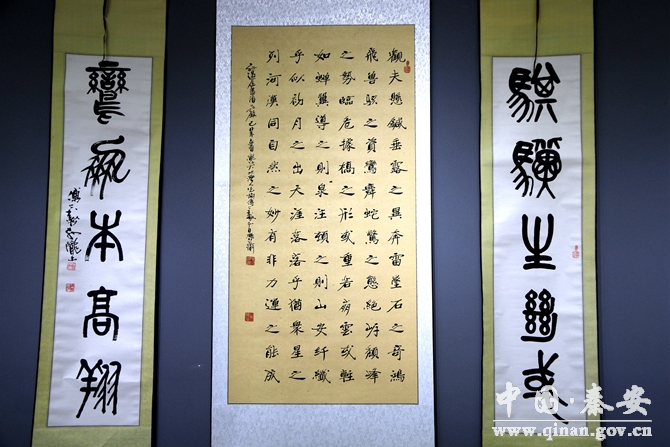 騏驥生幽或
觀夫懸鍼垂露之異奔雷墜石之奇鴻
飛獸駭之資鸞舞蛇驚之態絕岸頹峰
之勢臨危據槁之形或重若崩雲或輕
如蟬翼導之則泉注頓之則山安纤纖
乎似初月之出天涯落落乎猶眾星之
列河漢同自然之妙有非力運之能成
鸞鳳本高翔
中国·秦安
www.qinan.gov.cn